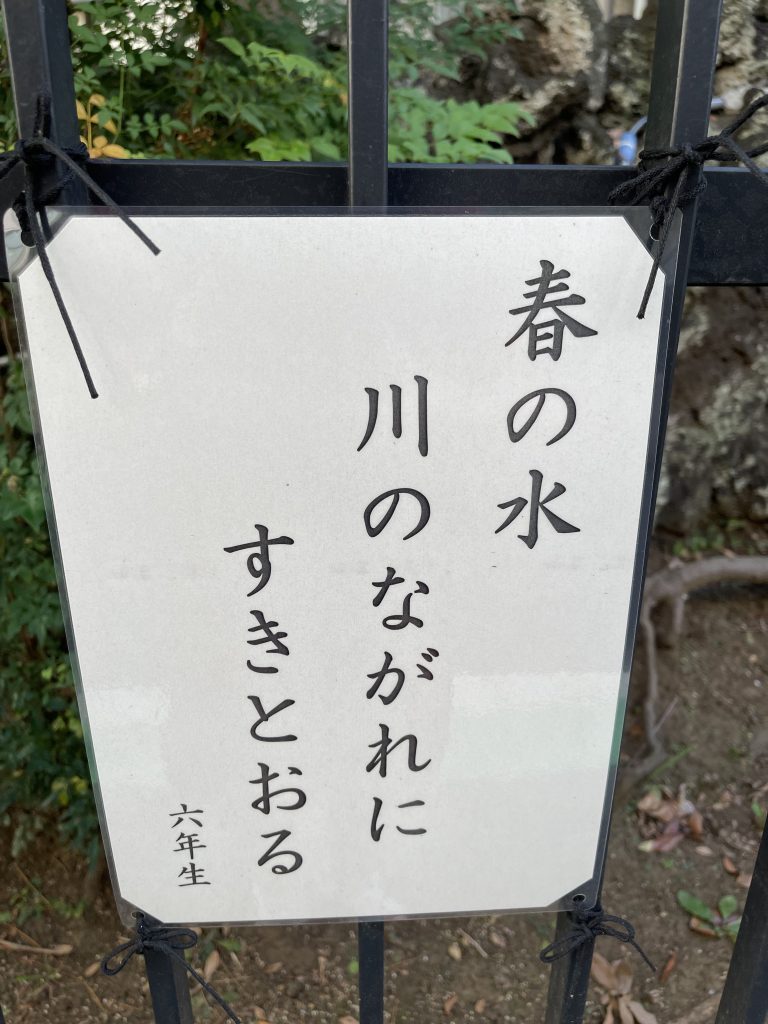 春の水
川のながれに
すきとおる
六年生